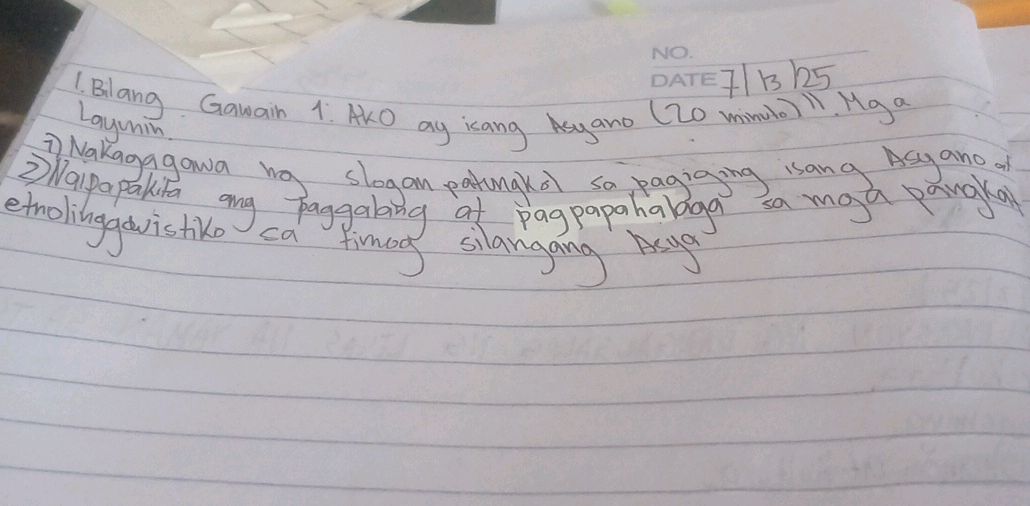 NO.
DATE 7/13/25
1. Bilang Gawain 1: AKO ay isang Asyano (20 minuto) II. Mga
Layunin.
1) Nakagagawa ng slogan patungkol sa pagiging isang Asyano at
2) Naipapakita ang Paggalang at pagpapahalaga sa mga pangkat
etnolinggwistiko sa timog silangang Asya